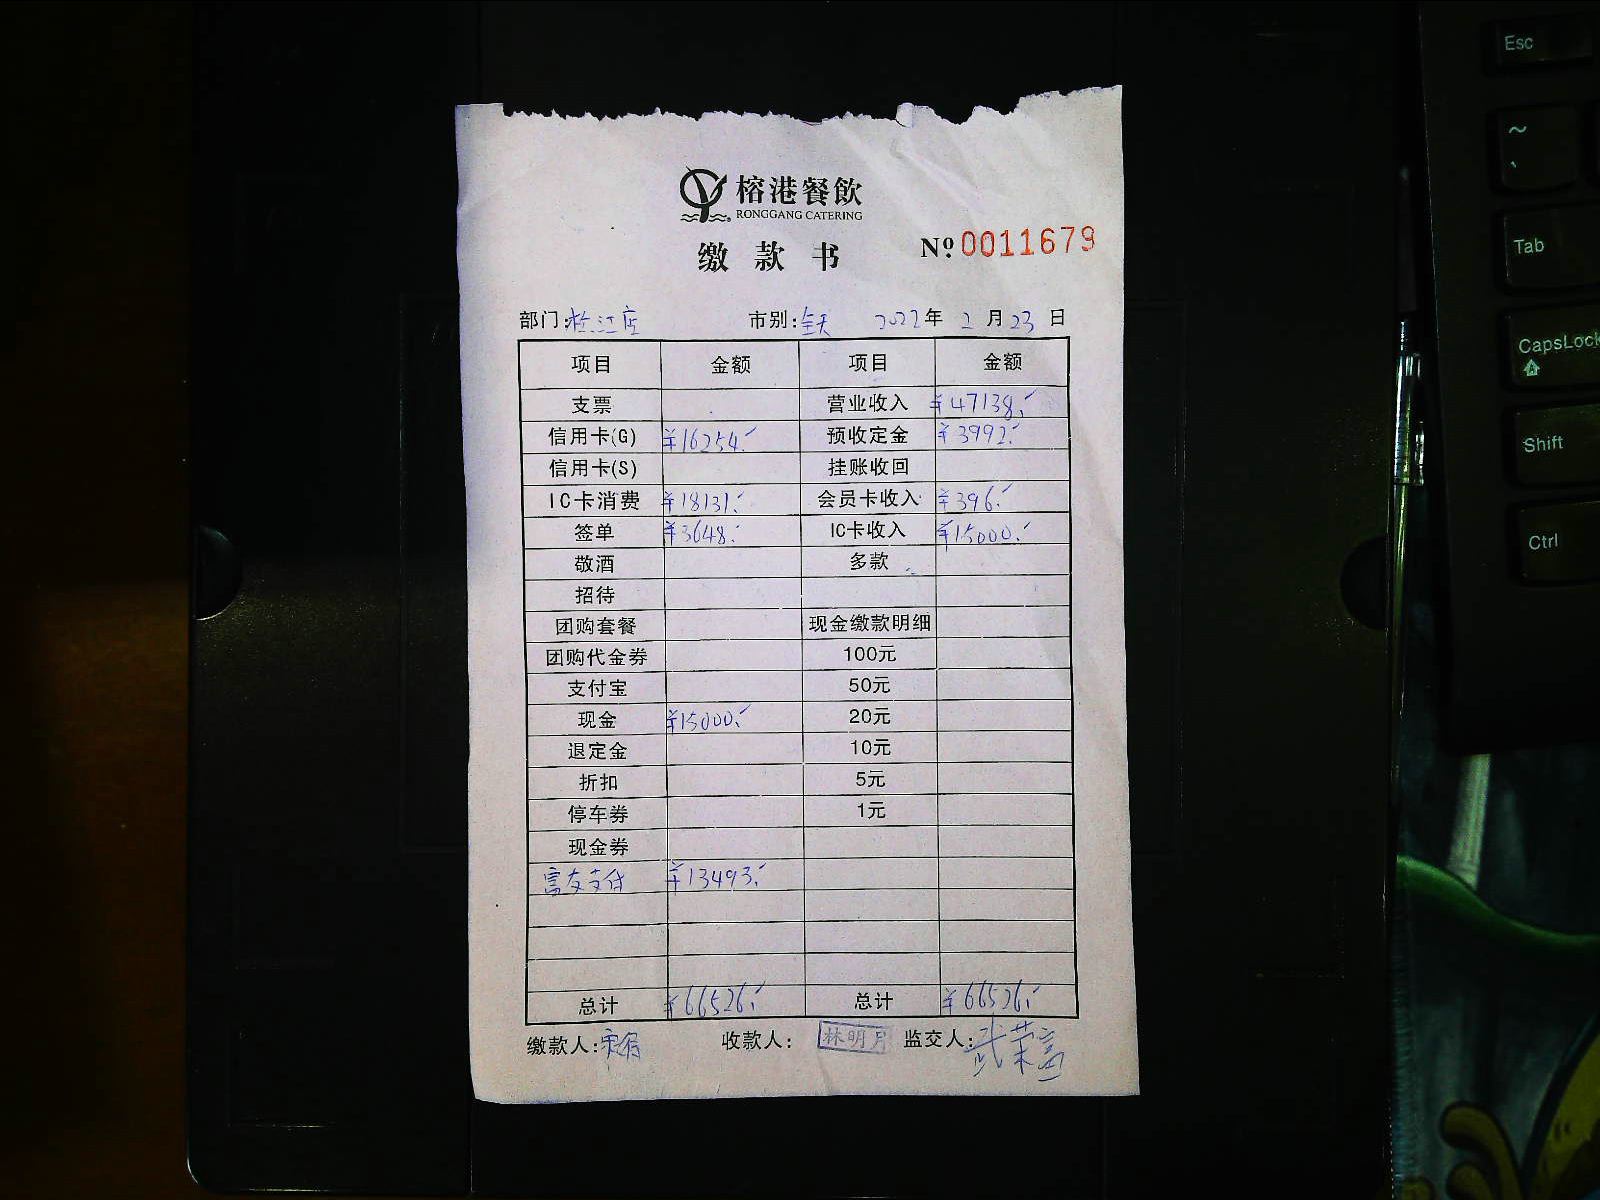 榕港餐飲
RONGGANG CATERING
缴款书
№ 0011679
部门:松江店 市别:全天 2022年 2月23日
项目 金额 项目 金额
支票 营业收入 ¥47138.-
信用卡(G) ¥16254.- 预收定金 ¥3992.-
信用卡(S) 挂账收回
IC卡消费 ¥18131.- 会员卡收入 ¥396.-
签单 ¥3648.- IC卡收入 ¥15000.-
敬酒 多款
招待
团购套餐 现金缴款明细
团购代金券 100元
支付宝 50元
现金 ¥15000.- 20元
退定金 10元
折扣 5元
停车券 1元
现金券
富友支付 ¥13493.-
总计 ¥66526.- 总计 ¥66526.-
缴款人: 收款人: 林明月 监交人:武荣富
Esc
~
Tab
CapsLock
Shift
Ctrl